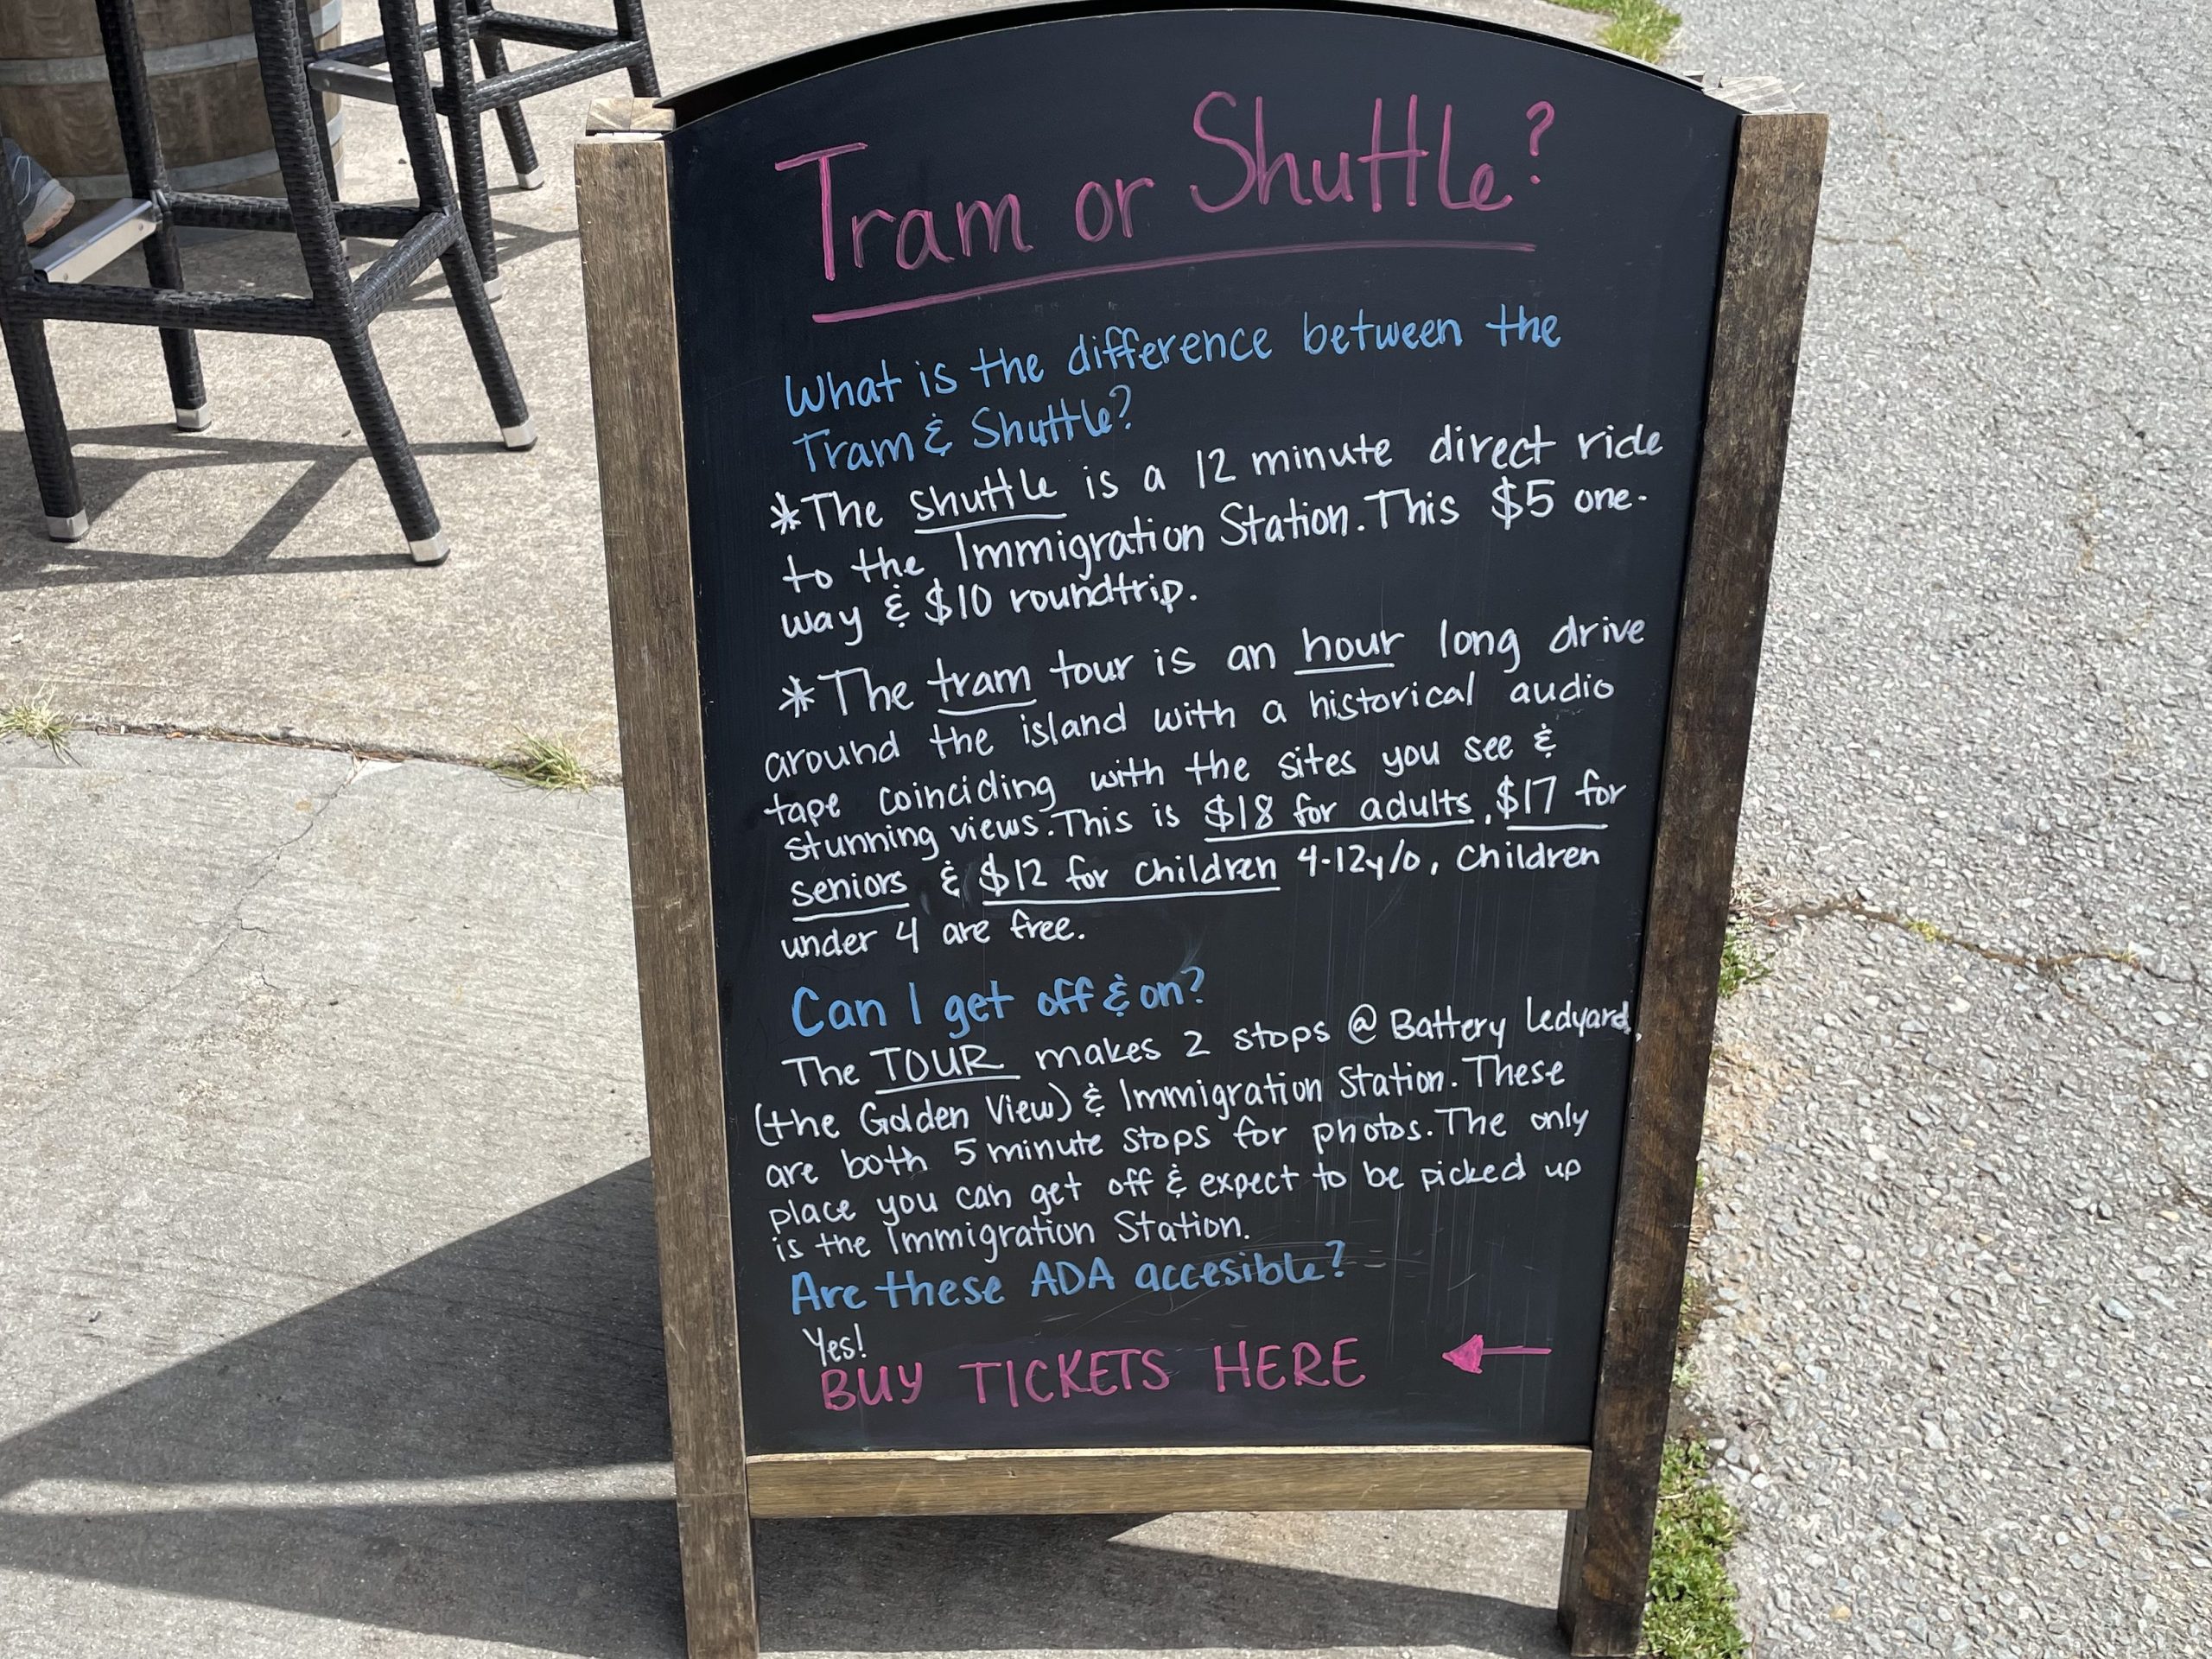 Tram or Shuttle?
What is the difference between the
Tram & Shuttle?
*The shuttle is a 12 minute direct ride
to the Immigration Station. This $5 one-
way & $10 roundtrip.
*The tram tour is an hour long drive
around the island with a historical audio
tape coinciding with the sites you see &
stunning views. This is $18 for adults, $17 for
seniors & $12 for children 4-12y/o, children
under 4 are free.
Can I get off & on?
The TOUR makes 2 stops @ Battery Ledyard,
(the Golden View) & Immigration Station. These
are both 5 minute stops for photos. The only
place you can get off & expect to be picked up
is the Immigration Station.
Are these ADA accesible?
Yes!
BUY TICKETS HERE ←